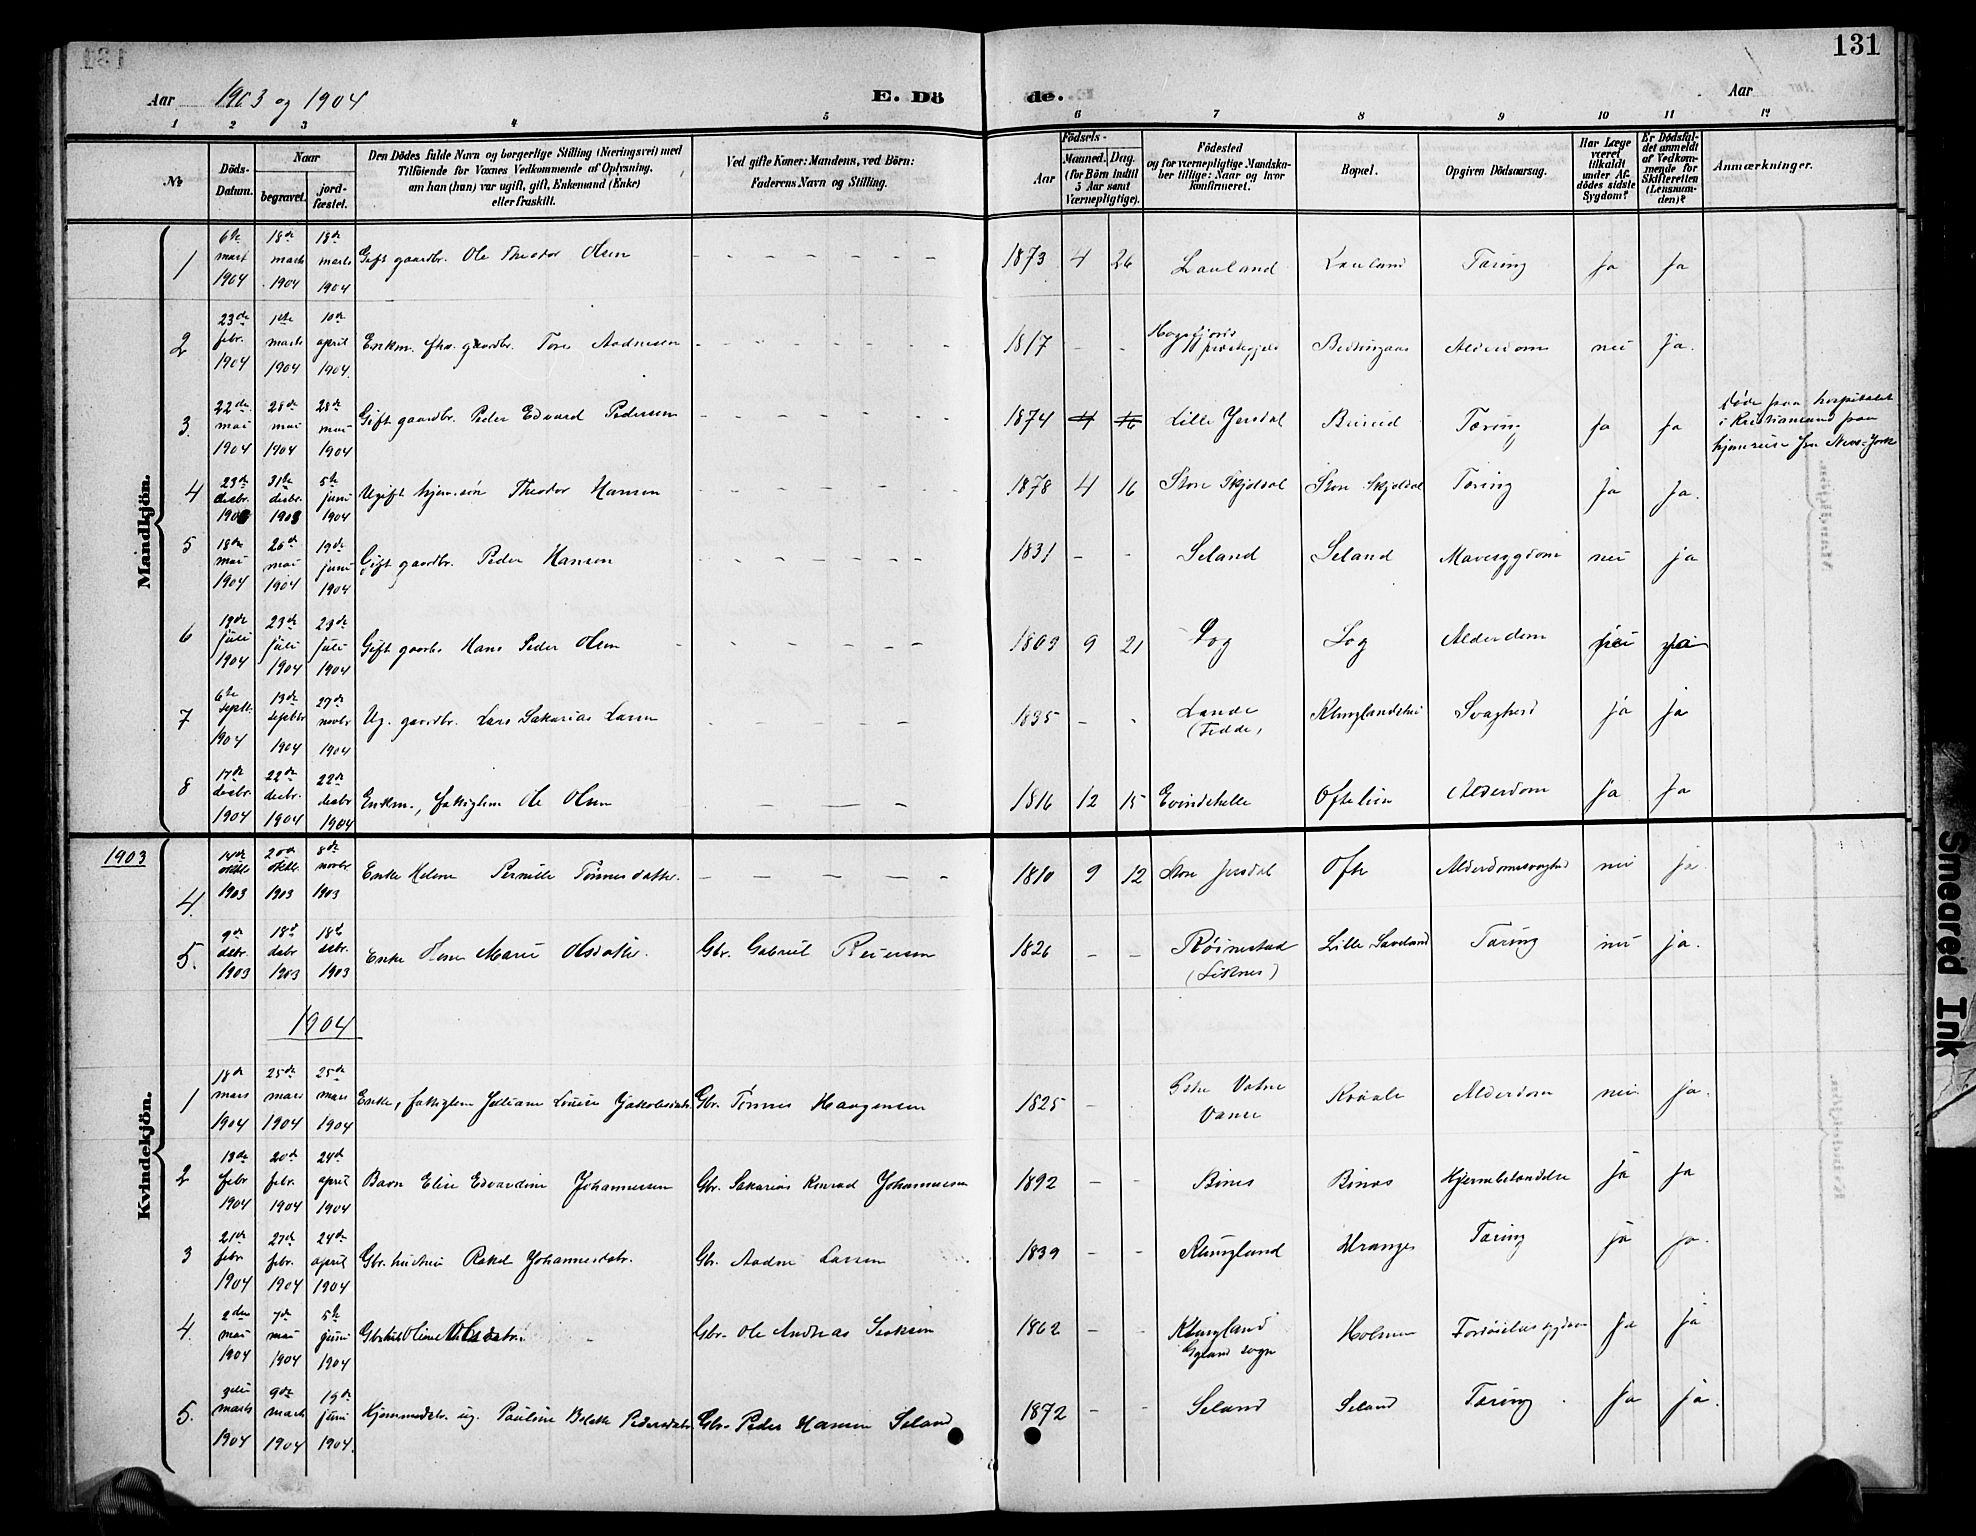 131
Aar 1903 og 1904 E. Dö de. Aar
1 2 3 4 5 6 7 8 9 10 11 12
№
Döds-Datum.
Naar
begravet.
jord-fæstet.
Den Dödes fulde Navn og borgerlige Stilling (Næringsvei) med
Tilföiende for Voxnes Vedkommende af Oplysning,
om han (hun) var ugift, gift, Enkemand (Enke)
eller fraskilt.
Ved gifte Koner: Mandens, ved Börn:
Faderens Navn og Stilling.
Födsels-
Aar
Maaned. Dag.
(for Börn indtil
5 Aar samt
Værnepligtige).
Födested
og for værnepligtige Mandska-
ber tillige: Naar og hvor
konfirmeret.
Bopæl.
Opgiven Dödsaarsag.
Har Læge
været
tilkaldt
under Af-
dödes sidste
Sygdom?
Er Dödsfal-
det anmeldt
af Vedkom-
mende for
Skifteretten
(Lensman-
den)?
Anmærkninger.
Mandkjön.
1 6te mars 1904 18de mars 1904 18de marts 1904 Gift gaardbr. Ole Theodor Olsen - - - - - - - 1873 4 26 Lauland Lauland Tæring ja ja
2 23de febr. 1904 1ste marts 1904 10de april 1904 Enkm. fhv. gaardbr. Tore Aadnesen - - - - - - - 1817 - - præstegjeld Alderdom nei ja.
3. 22de mai 1904 28de mai 1904 28de mai 1904 Gift gaardbr. Peder Edvard Pedersen - - - - - - - 1874 4 16 Lille Jersdal Tæring ja ja Døde paa hospitalet
i Kristiansand paa
hjemreise fra New-York
4 23de desbr. 1903 31te desbr. 1903 5te juni 1904 Ugift hjem.søn Theodor Hansen - - - - - - 1878 4 16 Store Skjoldal Store Skjoldal Tæring ja ja.
5 18de mai 1904 26de mai 1904 19de juni 1904 Gift gaardbr. Peder Hansen - - - - - - - 1831 - - Seland Seland Mavesygdom nei ja
6 19de juli 1904 23de juli 1904 23de juli 1904 Gift gaardbr. Hans Peder Olsen - - - - - - 9 21 Log Log Alderdom
7 6te septbr. 1904 13de septbr 1904 27de novbr 1904 Ug. gaardbr. Lars Sakarias Larsen - - - - - - - 1835 - - Lande
(Fedde, Svaghed ja ja
8 17de desbr. 1904 22de desbr. 1904 22de desbr 1904 Enkm., fattiglem Ole Olsen - - - - 1816 12 15 Evindshelle Oftelien Alderdom ja ja
1903
Kvindekjön.
4. 14de oktbr. 1903 20de oktbr. 1903 8de novbr 1903 Enke Helene Pernille Tønnesdatter. - - - - - 1810 9 12 Store Jersdal Ofte Alderdomssvaghed nei ja.
5. 9de desbr 1903 18de desbr 1903 18de desbr. 1903 Enke Marie Olsdatter. Gbr. Gabriel Reiersen 1826 - - Røinestad
(Liknes) Lille Laveland Tæring nei ja.
1904
1 18de mars 1904 25de mars 1904 25de mars 1904 Enke, fattiglem Juliane Louise Jakobsdatr. Gbr. Tønnes Haagensen 1825 - - Vatne
Vanse Kvaale Alderdom nei. ja.
2 febr 1904 20de febr. 1904 24de april 1904 Barn Elise Edvardine Johannessen Gbr. Sakarias Konrad Johannessen 1892 - - Bines Binos Hjernebetændelse ja ja
3 21de febr. 1904 27de febr. 1904 24de april 1904 Gbr. hustru Rakel Johannesdatr. Gbr. Aadne Larsen 1839 - - Klungland Hranges Tæring ja ja.
4. 2den mai 1904 7de mai 1904 5te juni 1904 Gbr. Ole Andreas 1862 - - Klungland
Gyland sogn Holmen ja ja
5. marts 1904 9de marts 1904 19de juni 1904. Hjemmedatr. ug. Pauline Bolette Pedersdatr. Gbr. Peder Hansen Seland 1872 - - Seland Seland Tæring ja ja.
Smeared Ink